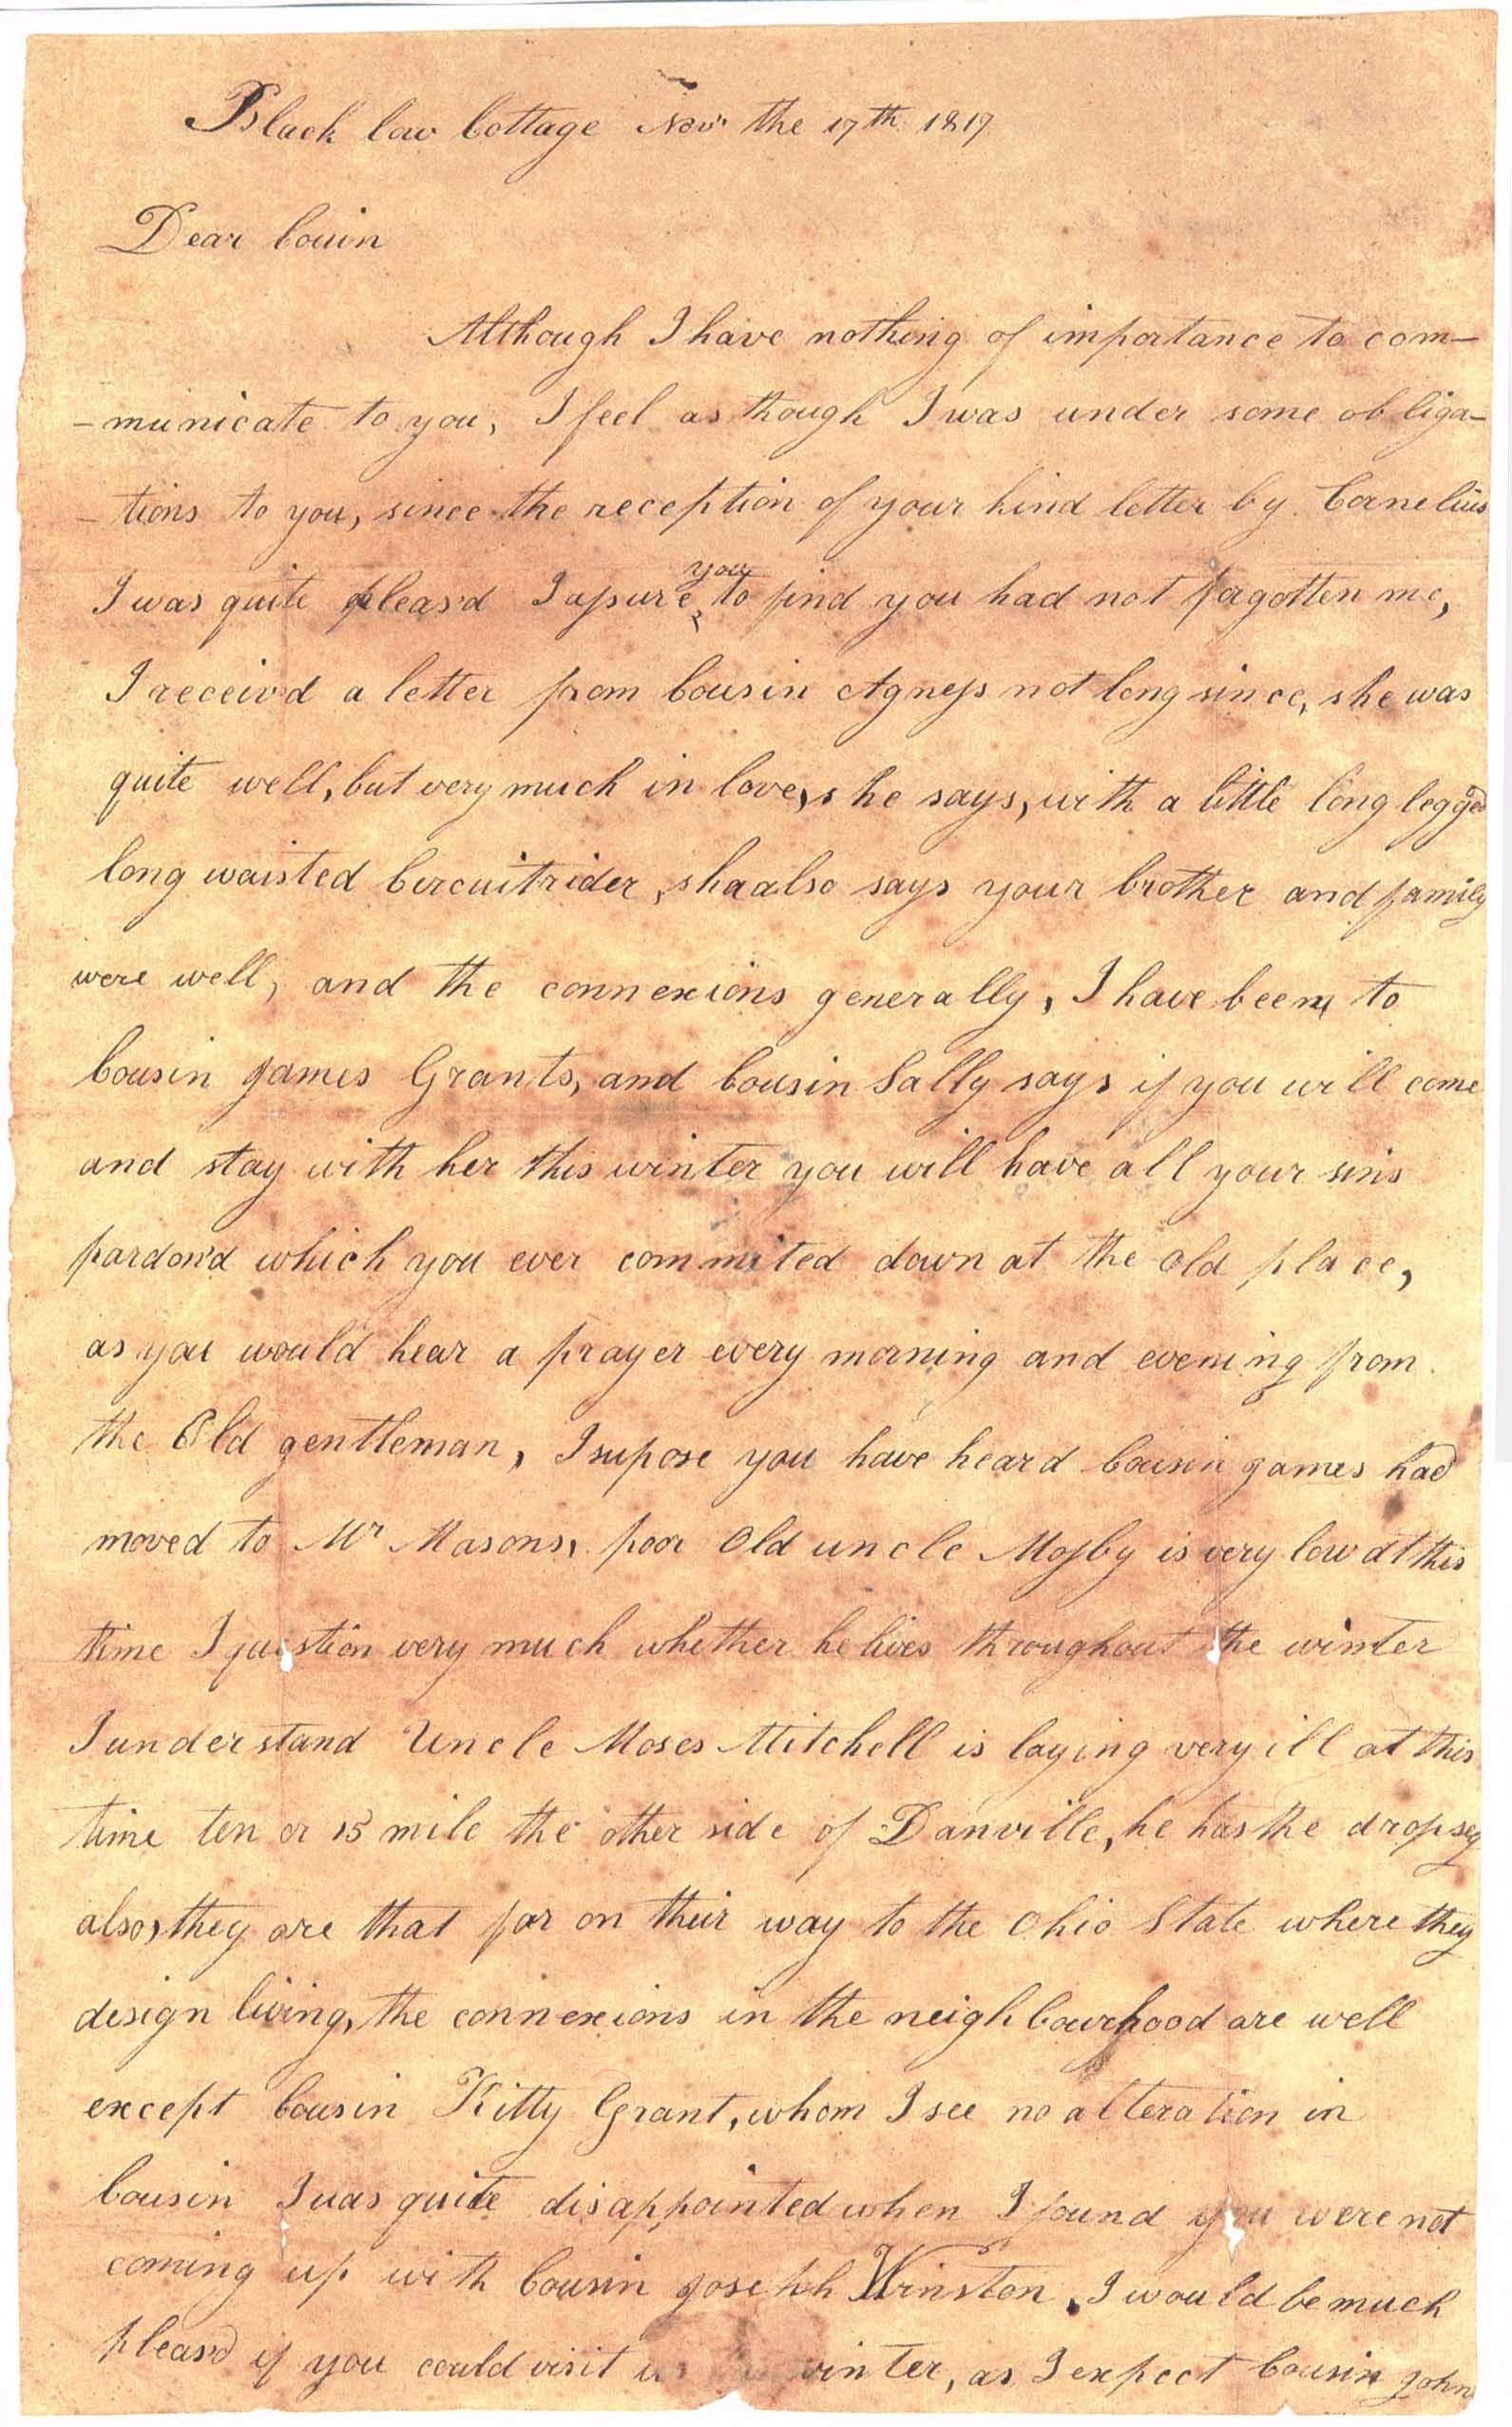 Black low Cottage Nov. the 17th 1817
Dear Cousin
Although I have nothing of importance to com-
-municate to you, I feel as though I was under some obliga-
-tions to you, since the reception of your kind letter by Cornelius
I was quite pleas'd I assure you to find you had not forgotten me,
I receiv'd a letter from Cousin Agness not long since, she was
quite well, but very much in love, she says, with a little long legged
long waisted Circuitrider, sha also says your brother and family
were well, and the connexions generally, I have been to
Cousin James Grants, and Cousin Sally says if you will come
and stay with her this winter you will have all your sins
pardon'd which you ever commited down at the old place,
as you would hear a prayer every morning and evening from
the Old gentleman, I supose you have heard Cousin James had
moved to Mr Masons, poor Old uncle Mosby is very low at this
time I question very much whether he lives throughout the winter
I understand Uncle Moses Mitchell is laying very ill at this
time ten or 15 mile the other side of Danville, he has the dropsey
also, they are that far on their way to the Ohio State where they
design living, the connexions in the neighbourhood are well
except Cousin Kitty Grant, whom I see no alteration in
Cousin I was quite disappointed when I found you were not
coming up with Cousin Joseph Winston, I would be much
pleas'd if you could visit us winter, as I expect Cousin John